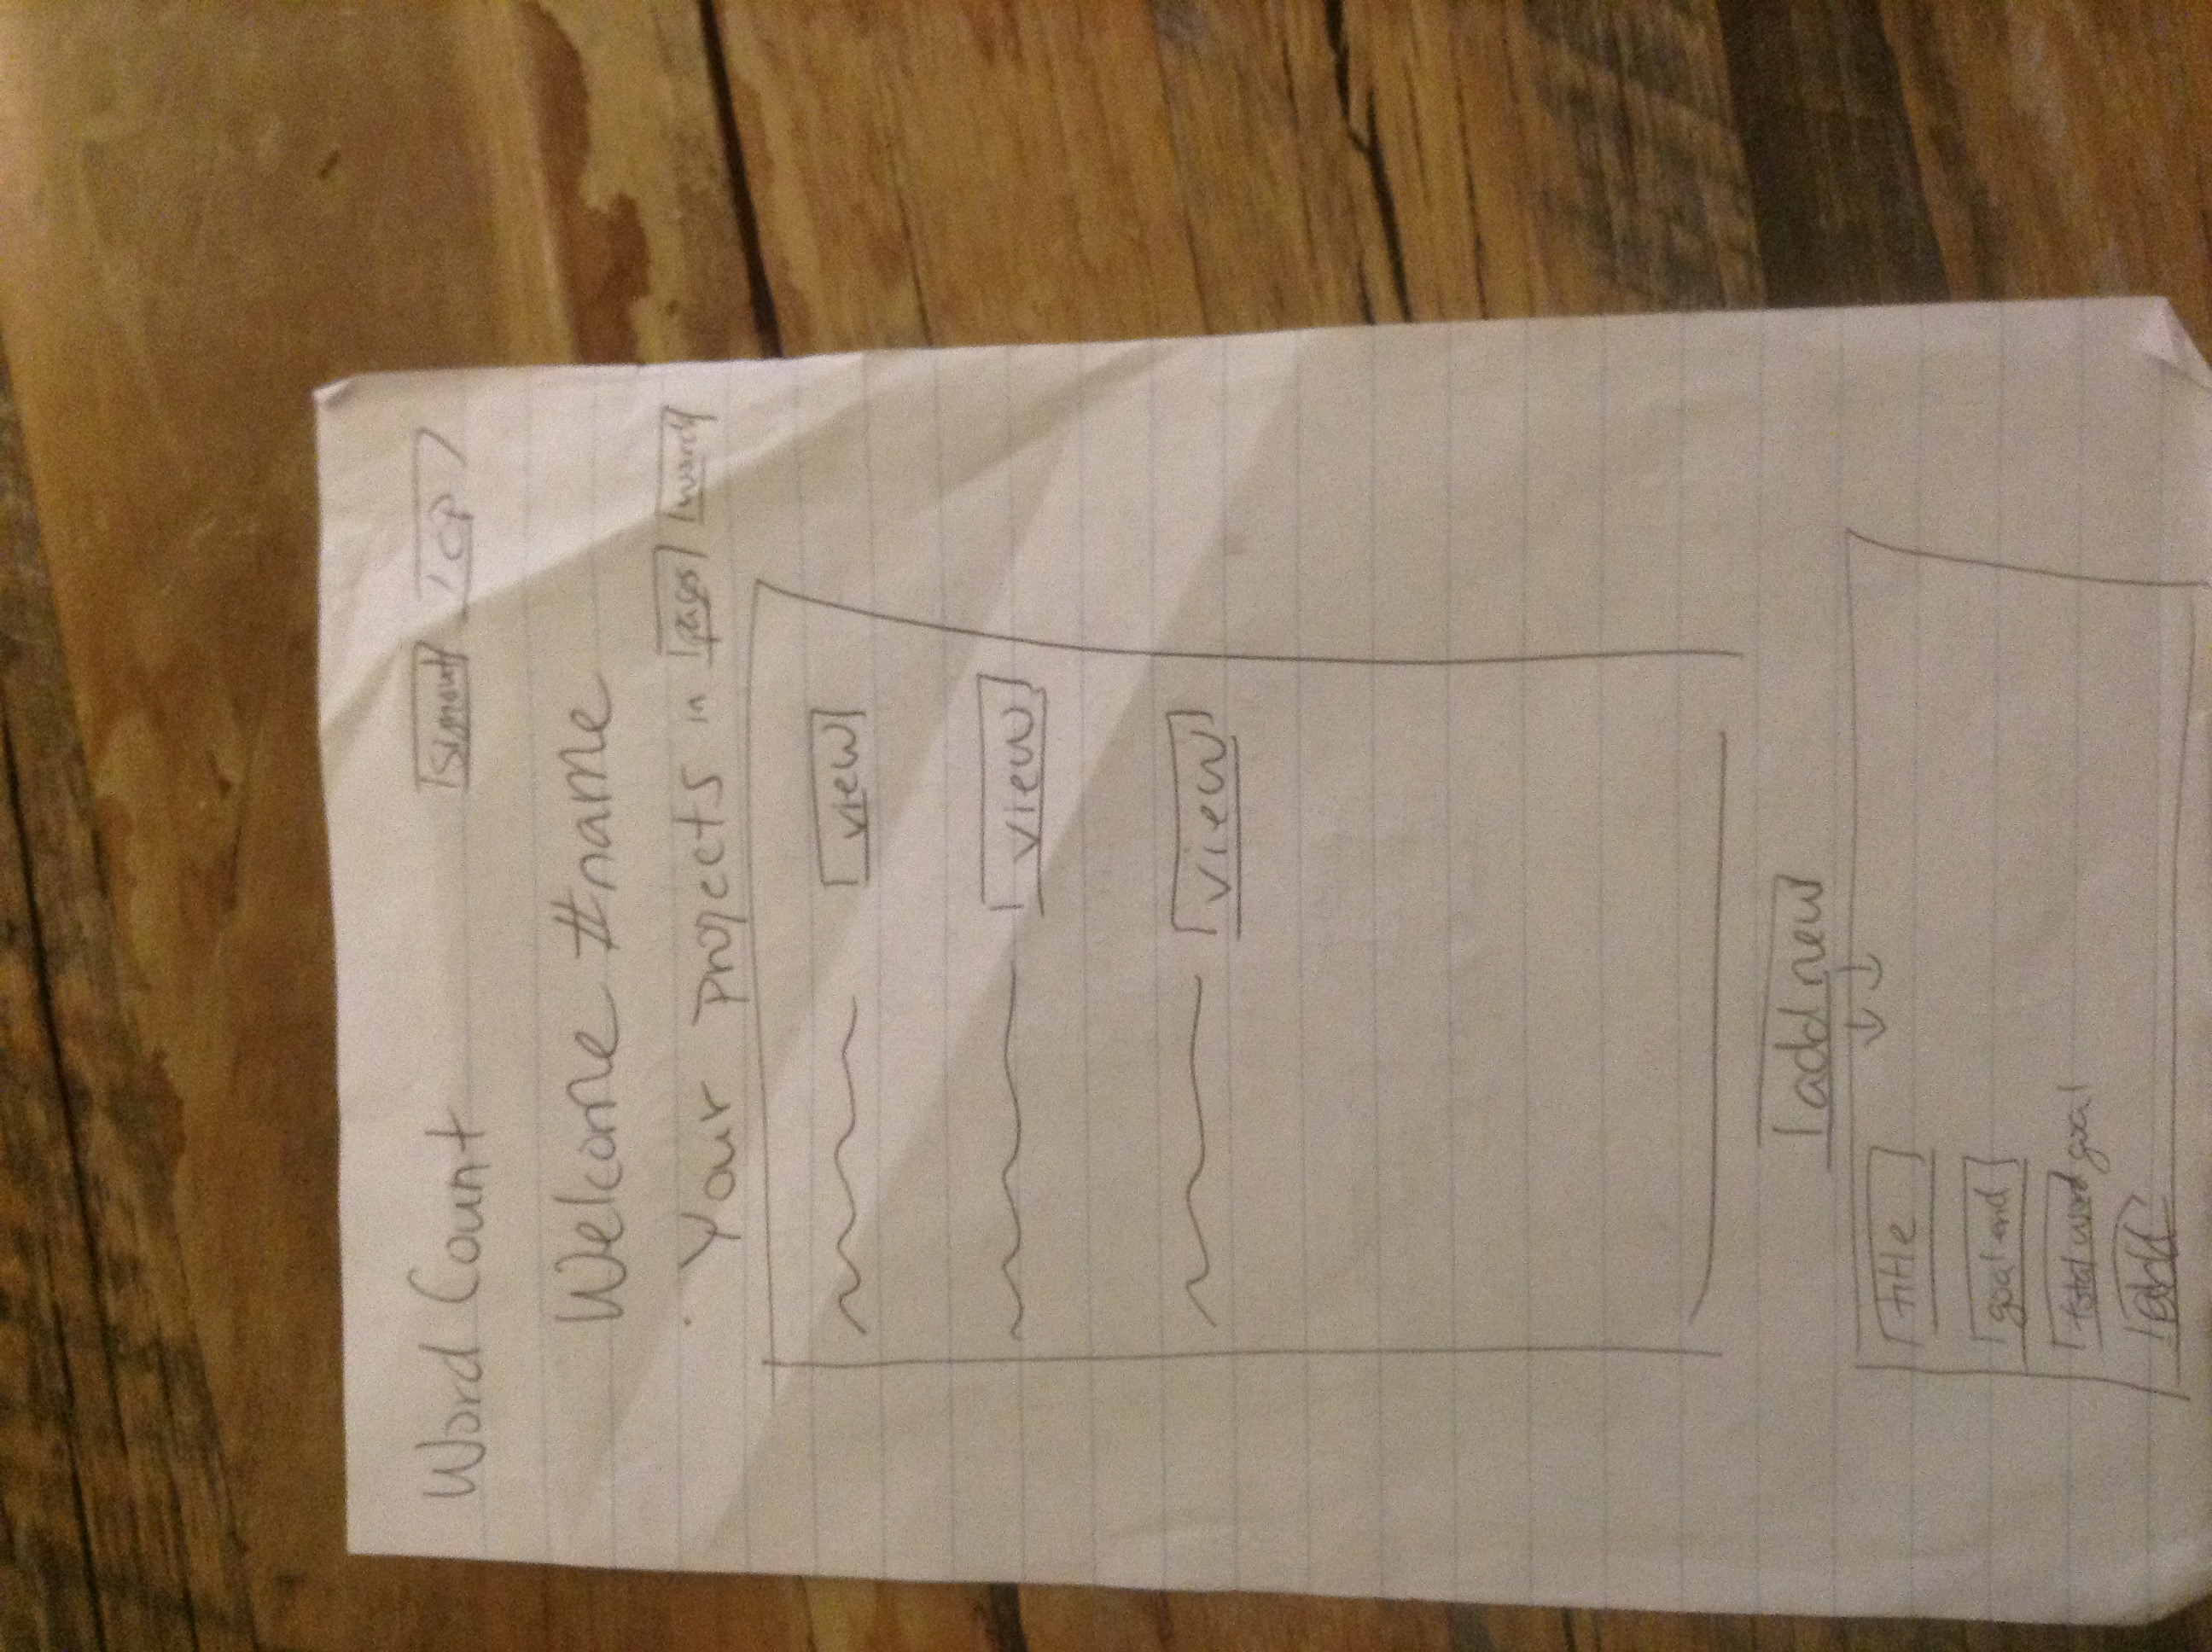 Word Count Signout CP
Welcome #name
Your projects in pages words
view
view
view
add new
title
goal end
total word goal
add